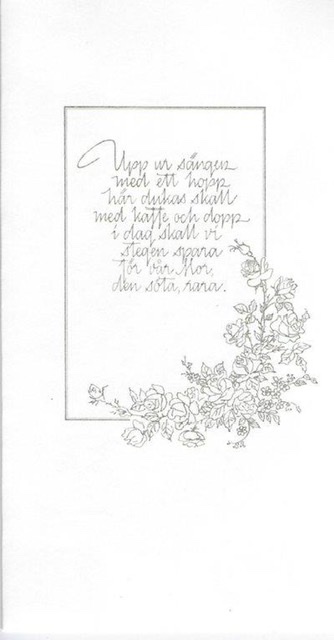 Upp ur sängen
med ett hopp
här dukas skall
med kaffe och dopp
i dag skall vi
stegen spara
för vår Mor,
den söta, rara.